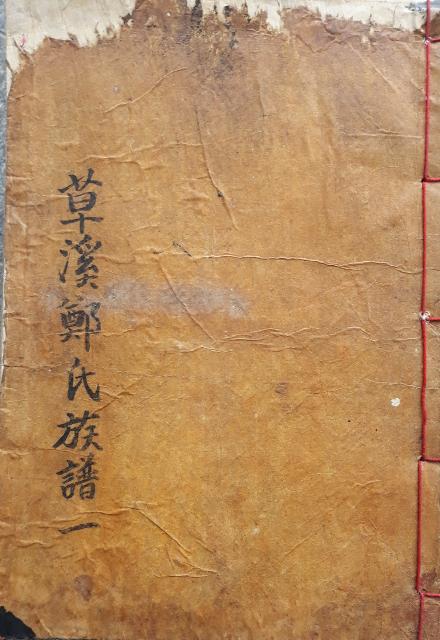 草溪鄭氏族譜一